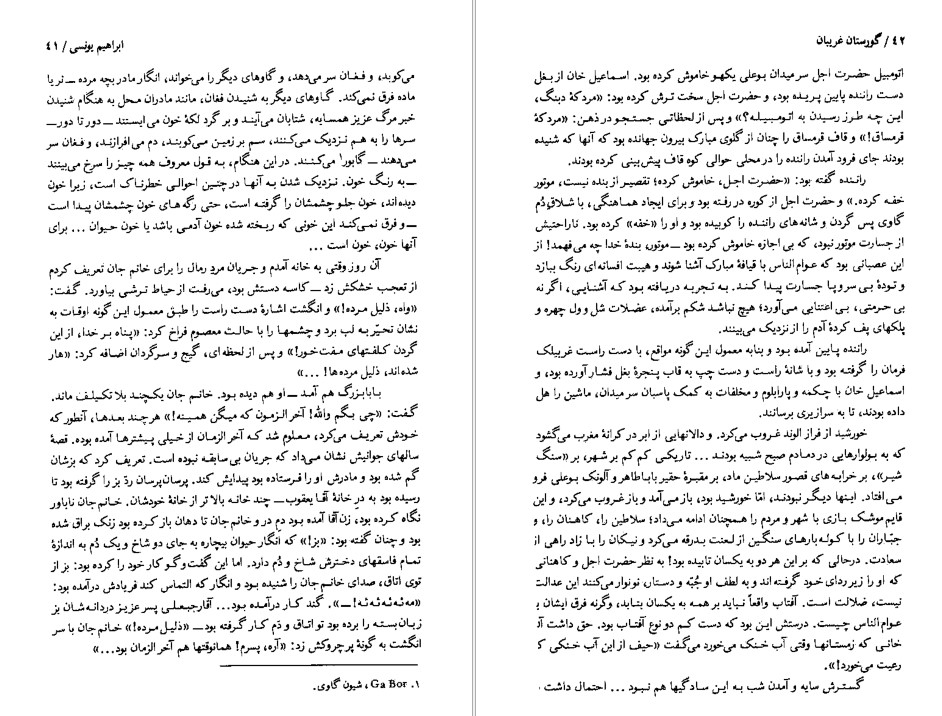 ابراهیم یونسی / ۴۱
می‌کوبد، و فغان سر می‌دهد، و گاوهای دیگر را می‌خواند، انگار مادربچه مرده — نر یا
ماده فرق نمی‌کند. گاوهای دیگر به شنیدن فغان، مانند مادران محل به هنگام شنیدن
خبر مرگ عزیز همسایه، شتابان می‌آیند و بر گرد لکهٔ خون می‌ایستند — دور تا دور —
سرها را به هم نزدیک می‌کنند، سم بر زمین می‌کوبند، دم می‌افرازند، و فغان سر
می‌دهند — گابور۱ می‌کنند. در این هنگام، به قول معروف همه چیز را سرخ می‌بینند
— به رنگ خون. نزدیک شدن به آنها در چنین احوالی خطرناک است، زیرا خون
دیده‌اند، خون جلو چشمشان را گرفته است، حتی رگه‌های خون چشمشان پیدا است
— و فرق نمی‌کند این خونی که ریخته شده خون آدمی باشد یا خون حیوان ... برای
آنها خون، خون است ...
آن روز وقتی به خانه آمدم و جریان مرد رمال را برای خانم جان تعریف کردم
از تعجب خشکش زد — کاسه دستش بود، می‌رفت از حیاط ترشی بیاورد. گفت:
«واه، ذلیل مرده!» و انگشت اشارهٔ دست راست را طبق معمول این گونه اوقات به
نشان تحیّر به لب برد و چشمها را با حالت معصوم فراخ کرد: «پناه بر خدا، از این
گردن کلفتهای مفت‌خور!» و پس از لحظه‌ای، گیج و سرگردان اضافه کرد: «هار
شده‌اند، ذلیل مرده‌ها! ...»
بابابزرگ هم آمد — او هم دیده بود. خانم جان یکچند بلاتکلیف ماند.
گفت: «چی بگم والله! آخر الزمون که میگن همینه!» هرچند بعدها، آنطور که
خودش تعریف می‌کرد، معلوم شد که آخر الزمان از خیلی پیشترها آمده بود. قصهٔ
سالهای جوانیش نشان می‌داد که جریان بی‌سابقه نبوده است. تعریف کرد که بزشان
گم شده بود و مادرش او را فرستاده بود پیدایش کند. پرسان‌پرسان ردّ بز را گرفته بود تا
رسیده بود به در خانهٔ آقا یعقوب — چند خانه بالاتر از خانهٔ خودشان. خانم جان ناباور
نگاه کرده بود، زن آقا آمده بود دم در و خانم جان تا دهان باز کرده بود زنک براق شده
بود و چنان گفته بود: «بز!» که انگار حیوان بیچاره به جای دو شاخ و یک دُم به اندازهٔ
تمام فاسقهای دخترش شاخ و دُم دارد. اما این گفت‌وگو کار خود را کرده بود: بز از
توی اتاق، صدای خانم جان را شنیده بود و انگار که التماس کند فریادش درآمده بود:
«مه ئه ئه ئه ئه! —». گند کار درآمده بود... آقارجبعلی پسر عزیز دردانه‌شان بز
زبان‌بسته را برده بود تو اتاق و دَم کار گرفته بود — «ذلیل مرده!» خانم جان با سر
انگشت به گونهٔ پرچروکش زد: «آره، پسرم! همانوقتها هم آخر الزمان بود...»
۱. Ga Bor، شیون گاوی.
۴۲ / گورستان غریبان
اتومبیل حضرت اجل سر میدان بوعلی یکهو خاموش کرده بود. اسماعیل خان از بغل
دست راننده پایین پریده بود، و حضرت اجل سخت ترش کرده بود: «مردکهٔ دبنگ،
این چه طرز رسیدن به اتومبیله؟» و پس از لحظاتی جستجو در ذهن: «مردکهٔ
قرمساق!» و قاف قرمساق را چنان از گلوی مبارک بیرون جهانده بود که آنها که شنیده
بودند جای فرود آمدن راننده را در محلی حوالی کوه قاف پیش‌بینی کرده بودند.
راننده گفته بود: «حضرت اجل، خاموش کرده؛ تقصیر از بنده نیست، موتور
خفه کرده.» و حضرت اجل از کوره در رفته بود و برای ایجاد هماهنگی، با شلاق دُم
گاوی پس گردن و شانه‌های راننده را کوبیده بود و او را «خفه» کرده بود. ناراحتیش
از جسارت موتور نبود، که بی اجازه خاموش کرده بود — موتور، بندهٔ خدا چه می‌فهمد! از
این عصبانی بود که عوام‌الناس با قیافهٔ مبارک آشنا شوند و هیبت افسانه‌ای رنگ ببازد
و تودهٔ بی سر و پا جسارت پیدا کند. به تجربه دریافته بود که آشنایی، اگر نه
بی‌حرمتی، بی‌اعتنایی می‌آورد؛ هیچ نباشد شکم برآمده، عضلات شل و ول چهره و
پلکهای پف کردهٔ آدم را از نزدیک می‌بینند.
راننده پایین آمده بود و بنابه معمول این گونه مواقع، با دست راست غربیلک
فرمان را گرفته بود و با شانهٔ راست و دست چپ به قاب پنجرهٔ بغل فشار آورده بود، و
اسماعیل خان با چکمه و پارابلوم و مخلفات به کمک پاسبان سر میدان، ماشین را هل
داده بودند، تا به سرازیری برسانند.
خورشید از فراز الوند غروب می‌کرد، و دالانهایی از ابر در کرانهٔ مغرب می‌گشود
که به بولوارهایی در دمادم صبح شبیه بودند ... تاریکی کم کم بر شهر، بر «سنگ
شیر»، بر خرابه‌های قصور سلاطین ماد، بر مقبرهٔ حقیر باباطاهر و آلونک بوعلی فرو
می‌افتاد. اینها دیگر نبودند، امّا خورشید بود، باز می‌آمد و باز غروب می‌کرد، و این
قایم موشک بازی با شهر و مردم را همچنان ادامه می‌داد؛ سلاطین را، کاهنان را، و
جبّاران را با کوله‌بارهای سنگین از لعنت بدرقه می‌کرد و نیکان را با زاد راهی از
سعادت. درحالی که بر این هر دو به یکسان تابیده بود! به نظر حضرت اجل و کاهنانی
که او را زیر ردای خود گرفته‌اند و به لطف او جُبّه و دستار نونوار می‌کنند این عدالت
نیست، ضلالت است. آفتاب واقعاً نباید بر همه به یکسان بتابد، وگرنه فرق ایشان با
عوام‌الناس چیست. درستش این بود که دست کم دو نوع آفتاب بود. حق داشت آن
خانی که زمستانها وقتی آب خنک می‌خورد می‌گفت «حیف از این آب خنکی که
رعیت می‌خورد!».
گسترش سایه و آمدن شب به این سادگیها هم نبود ... احتمال داشت